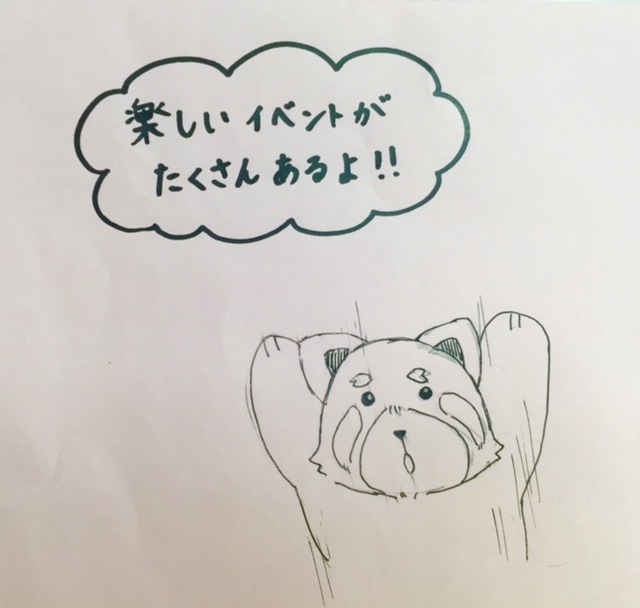 楽しいイベントが
たくさんあるよ!!